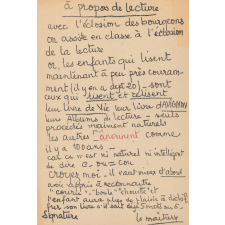 à propos de lecture
avec l'éclosion des bourgeons
on assiste en classe à l'éclosion
de la lecture
or, les enfants qui lisent
maintenant à peu près couram-
ment (il y en a sept 20) - sont
ceux qui lisent et relisent
leur livre de Vie leur livre d'AVIGNON
leurs Albums de lecture - seuls
procédés vraiment naturels
les autres ânonnent comme
il y a 100 ans -
car ce n'est ni naturel ni intelligent
de dire c - ou = cou
croyez moi - il vaut mieux d'abord
avoir appris à reconnaître
"courir" - "boule" "chouette" et
l'enfant aura plus de plaisir à
lire son livre
Signature
le maître